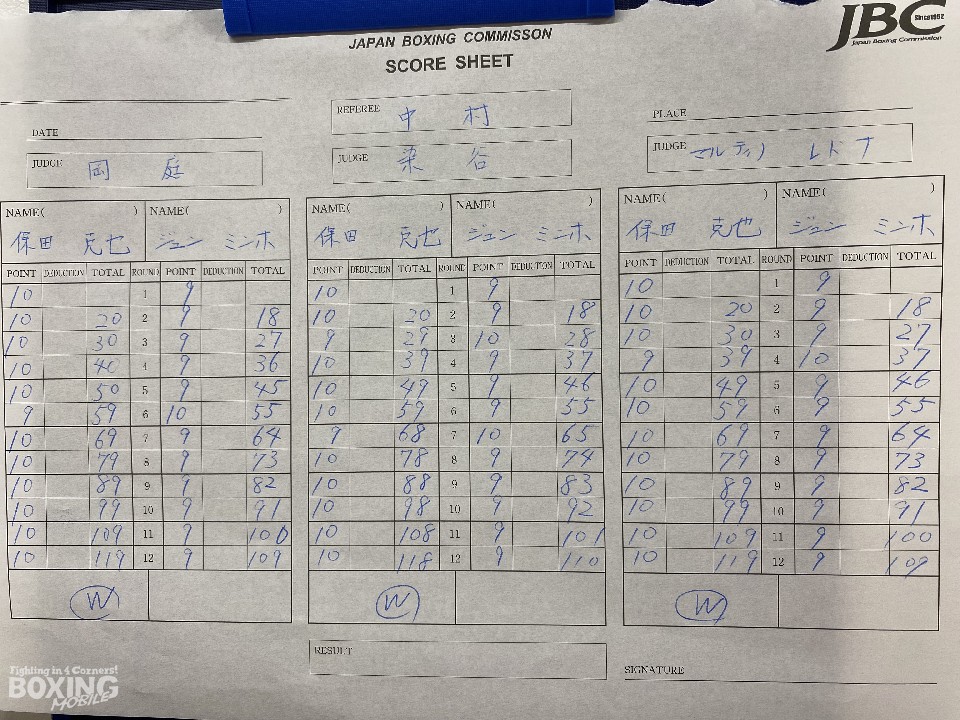 JBC Since1952
Japan Boxing Commission
JAPAN BOXING COMMISSON
SCORE SHEET
DATE
REFEREE 中 村
PLACE
JUDGE 岡 庭
JUDGE 染 谷
JUDGE マルティノ レドナ
NAME( ) NAME( ) NAME( ) NAME( ) NAME( ) NAME( )
保田 克也 ジュン ミンホ 保田 克也 ジュン ミンホ 保田 克也 ジュン ミンホ
POINT DEDUCTION TOTAL ROUND POINT DEDUCTION TOTAL POINT DEDUCTION TOTAL ROUND POINT DEDUCTION TOTAL POINT DEDUCTION TOTAL ROUND POINT DEDUCTION TOTAL
10 1 9 10 1 9 10 1 9
10 20 2 9 18 10 20 2 9 18 10 20 2 9 18
10 30 3 9 27 9 29 3 10 28 10 30 3 9 27
10 40 4 9 36 10 39 4 9 37 9 39 4 10 37
10 50 5 9 45 10 49 5 9 46 10 49 5 9 46
9 59 6 10 55 10 59 6 9 55 10 59 6 9 55
10 69 7 9 64 9 68 7 10 65 10 69 7 9 64
10 79 8 9 73 10 78 8 9 74 10 79 8 9 73
10 89 9 9 82 10 88 9 9 83 10 89 9 9 82
10 99 10 9 91 10 98 10 9 92 10 99 10 9 91
10 109 11 9 100 10 108 11 9 101 10 109 11 9 100
10 119 12 9 109 10 118 12 9 110 10 119 12 9 109
W W W
RESULT
SIGNATURE
Fighting in 4 Corners!
BOXING
MOBILE